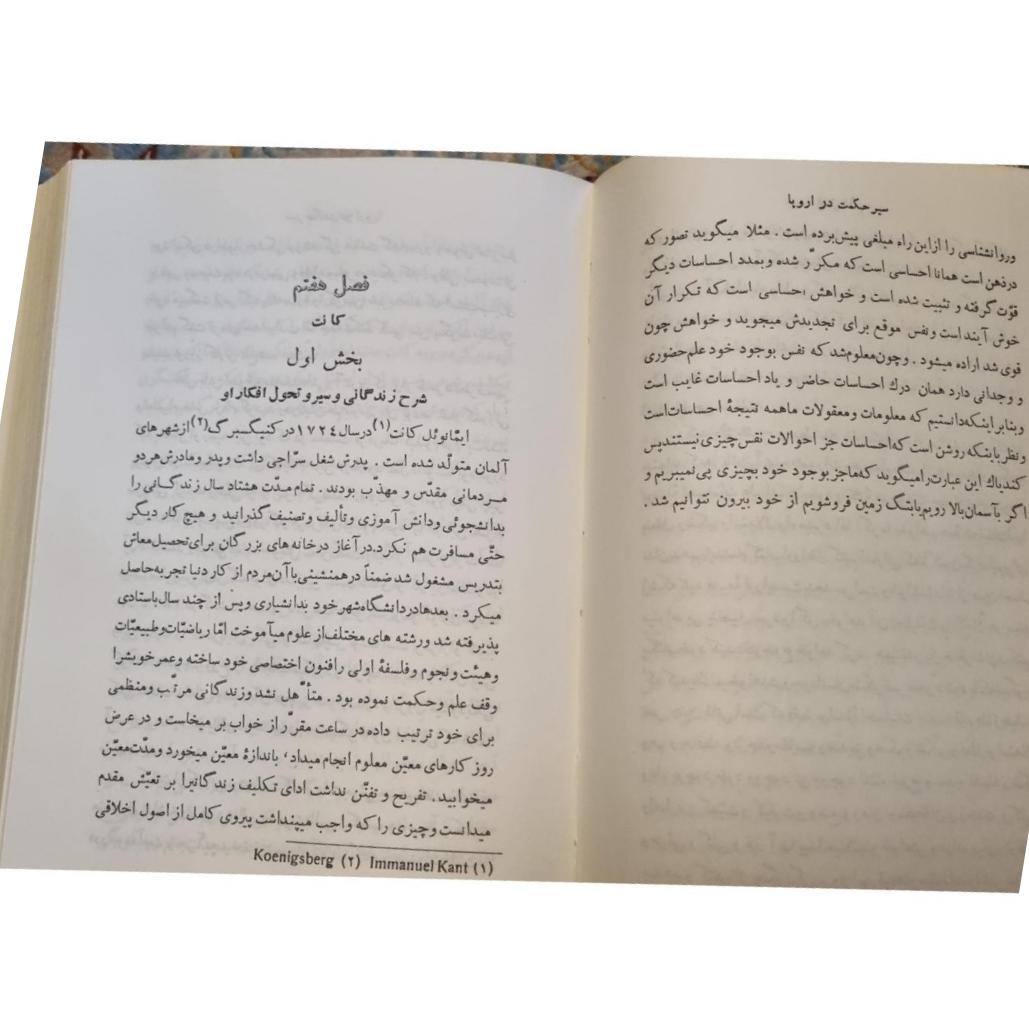 سیر حکمت در اروپا
وروانشناسی را ازاین راه مبلغی پیش‌برده است . مثلا میگوید تصور که
درذهن است همانا احساسی است که مکرّر شده و بمدد احساسات دیگر
قوّت گرفته و تثبیت شده است و خواهش احساسی است که تکرار آن
خوش آیند است ونفس موقع برای تجدیدش میجوید و خواهش چون
قوی شد اراده میشود . وچون معلوم شد که نفس بوجود خود علم حضوری
و وجدانی دارد همان درك احساسات حاضر و یاد احساسات غایب است
وبنابر اینکه دانستیم که معلومات و معقولات ما همه نتیجهٔ احساسات است
و نظر باینکه روشن است که احساسات جز احوالات نفس چیزی نیستند پس
کندیاك این عبارت را میگوید که ما جز بوجود خود بچیزی پی نمیبریم و
اگر بآسمان بالا رویم یا بتگ زمین فروشویم از خود بیرون نتوانیم شد .
فصل هفتم
کانت
بخش اول
شرح زندگانی و سیر و تحول افکار او
ایمّانوئل کانت (۱) در سال ۱۷۲٤ در کنیگسبرگ (۲) از شهرهای
آلمان متولّد شده است . پدرش شغل سرّاجی داشت و پدر و مادرش هر دو
مردمانی مقدّس و مهذّب بودند . تمام مدّت هشتاد سال زندگانی را
بدانشجوئی ودانش آموزی و تألیف و تصنیف گذرانید و هیچ کار دیگر
حتّی مسافرت هم نکرد. در آغاز درخانه های بزرگان برای تحصیل معاش
بتدریس مشغول شد ضمناً در همنشینی با آن مردم از کار دنیا تجربه حاصل
میکرد . بعدها در دانشگاه شهر خود بدانشیاری و پس از چند سال باستادی
پذیرفته شد ورشته های مختلف از علوم میآموخت امّا ریاضیّات و طبیعیّات
وهیئت و نجوم و فلسفهٔ اولی را فنون اختصاصی خود ساخته و عمر خویش را
وقف علم و حکمت نموده بود . متأهّل نشد و زندگانی مرتّب و منظمی
برای خود ترتیب داده در ساعت مقرّر از خواب بر میخاست و در عرض
روز کارهای معیّن معلوم انجام میداد، باندازهٔ معیّن میخورد و مدّت معیّن
میخوابید . تفریح و تفنّن نداشت ادای تکلیف زندگانی را بر تعیّش مقدم
میدانست و چیزی را که واجب میپنداشت پیروی کامل از اصول اخلاقی
(۱) Immanuel Kant (۲) Koenigsberg